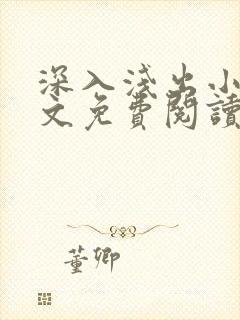 深入淺出小
文免費閱讀
董卿